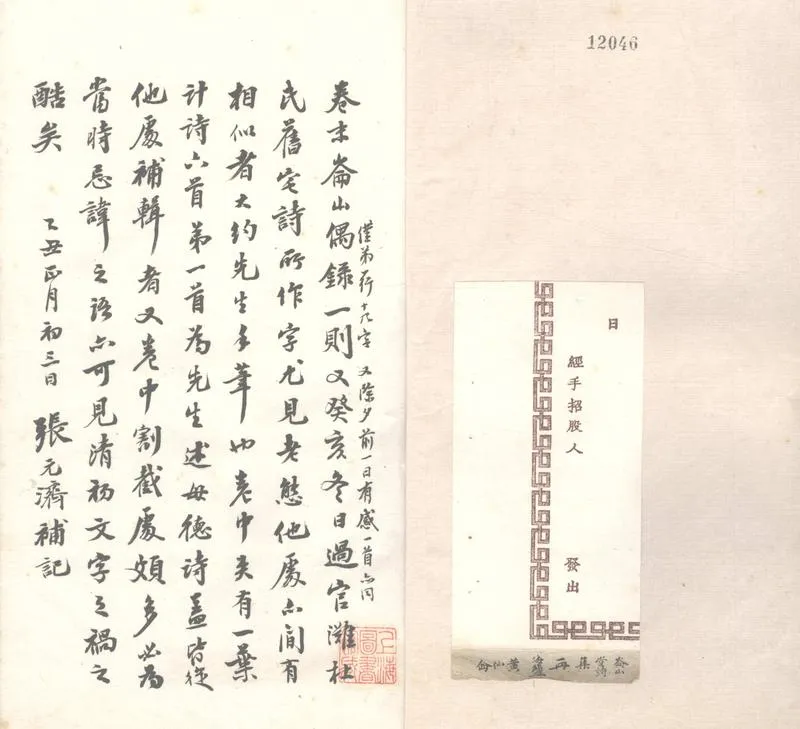 12046
日
經手招股人 發出
卷末崙山偶錄一則又癸亥冬日過官灘杜
僅弟行十九字 又除夕前一日有感一首亦同
氏舊宅詩所作字尤見老態他處亦間有
相似者大約先生手筆也卷中夾有一葉
計詩六首第一首為先生述母德詩蓋皆從
他處補輯者又卷中割截處頗多必為
當時忌諱之語亦可見清初文字之禍之
酷矣 乙丑正月初三日 張元濟補記
上海圖書館藏